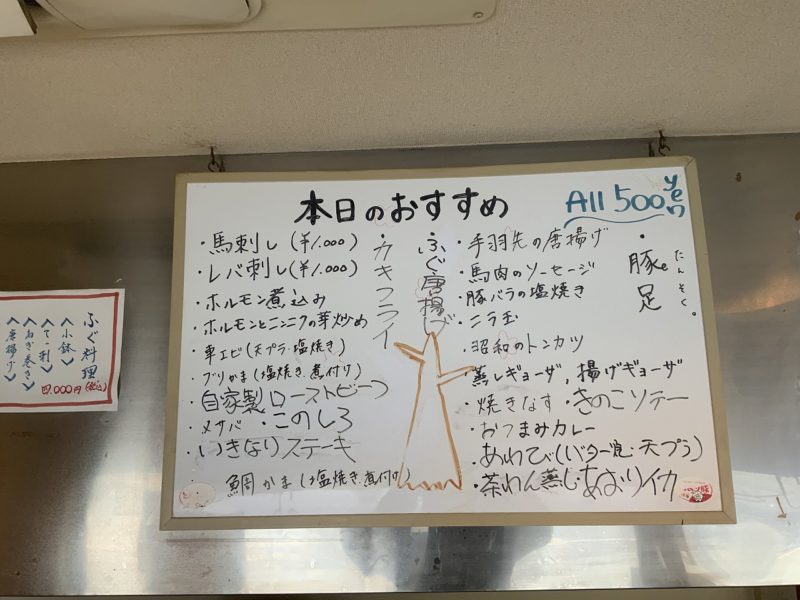 本日のおすすめ
All 500 yen
・馬刺し(¥1.000)
・レバ刺し(¥1.000)
・ホルモン煮込み
・ホルモンとニンニクの芽炒め
・車エビ(天プラ・塩焼き)
・ブリかま(塩焼き・煮付け)
自家製ローストビーフ
・〆サバ ・このしろ
・いきなりステーキ
鯛かま(塩焼き・煮付け)
・カキフライ
ふぐ唐揚げ
・手羽先の唐揚げ
・馬肉のソーセージ
・豚バラの塩焼き
・ニラ玉
・昭和のトンカツ
蒸しギョーザ,揚げギョーザ
・焼きなす ・きのこソテー
・おつまみカレー
・あわび(バター焼・天プラ)
・茶わん蒸し・あおりイカ
・豚足
たんそく。
ふぐ料理
<小鉢>
<てっ刺>
<ねぎ巻き>
<唐揚げ>
4.000円(税込)